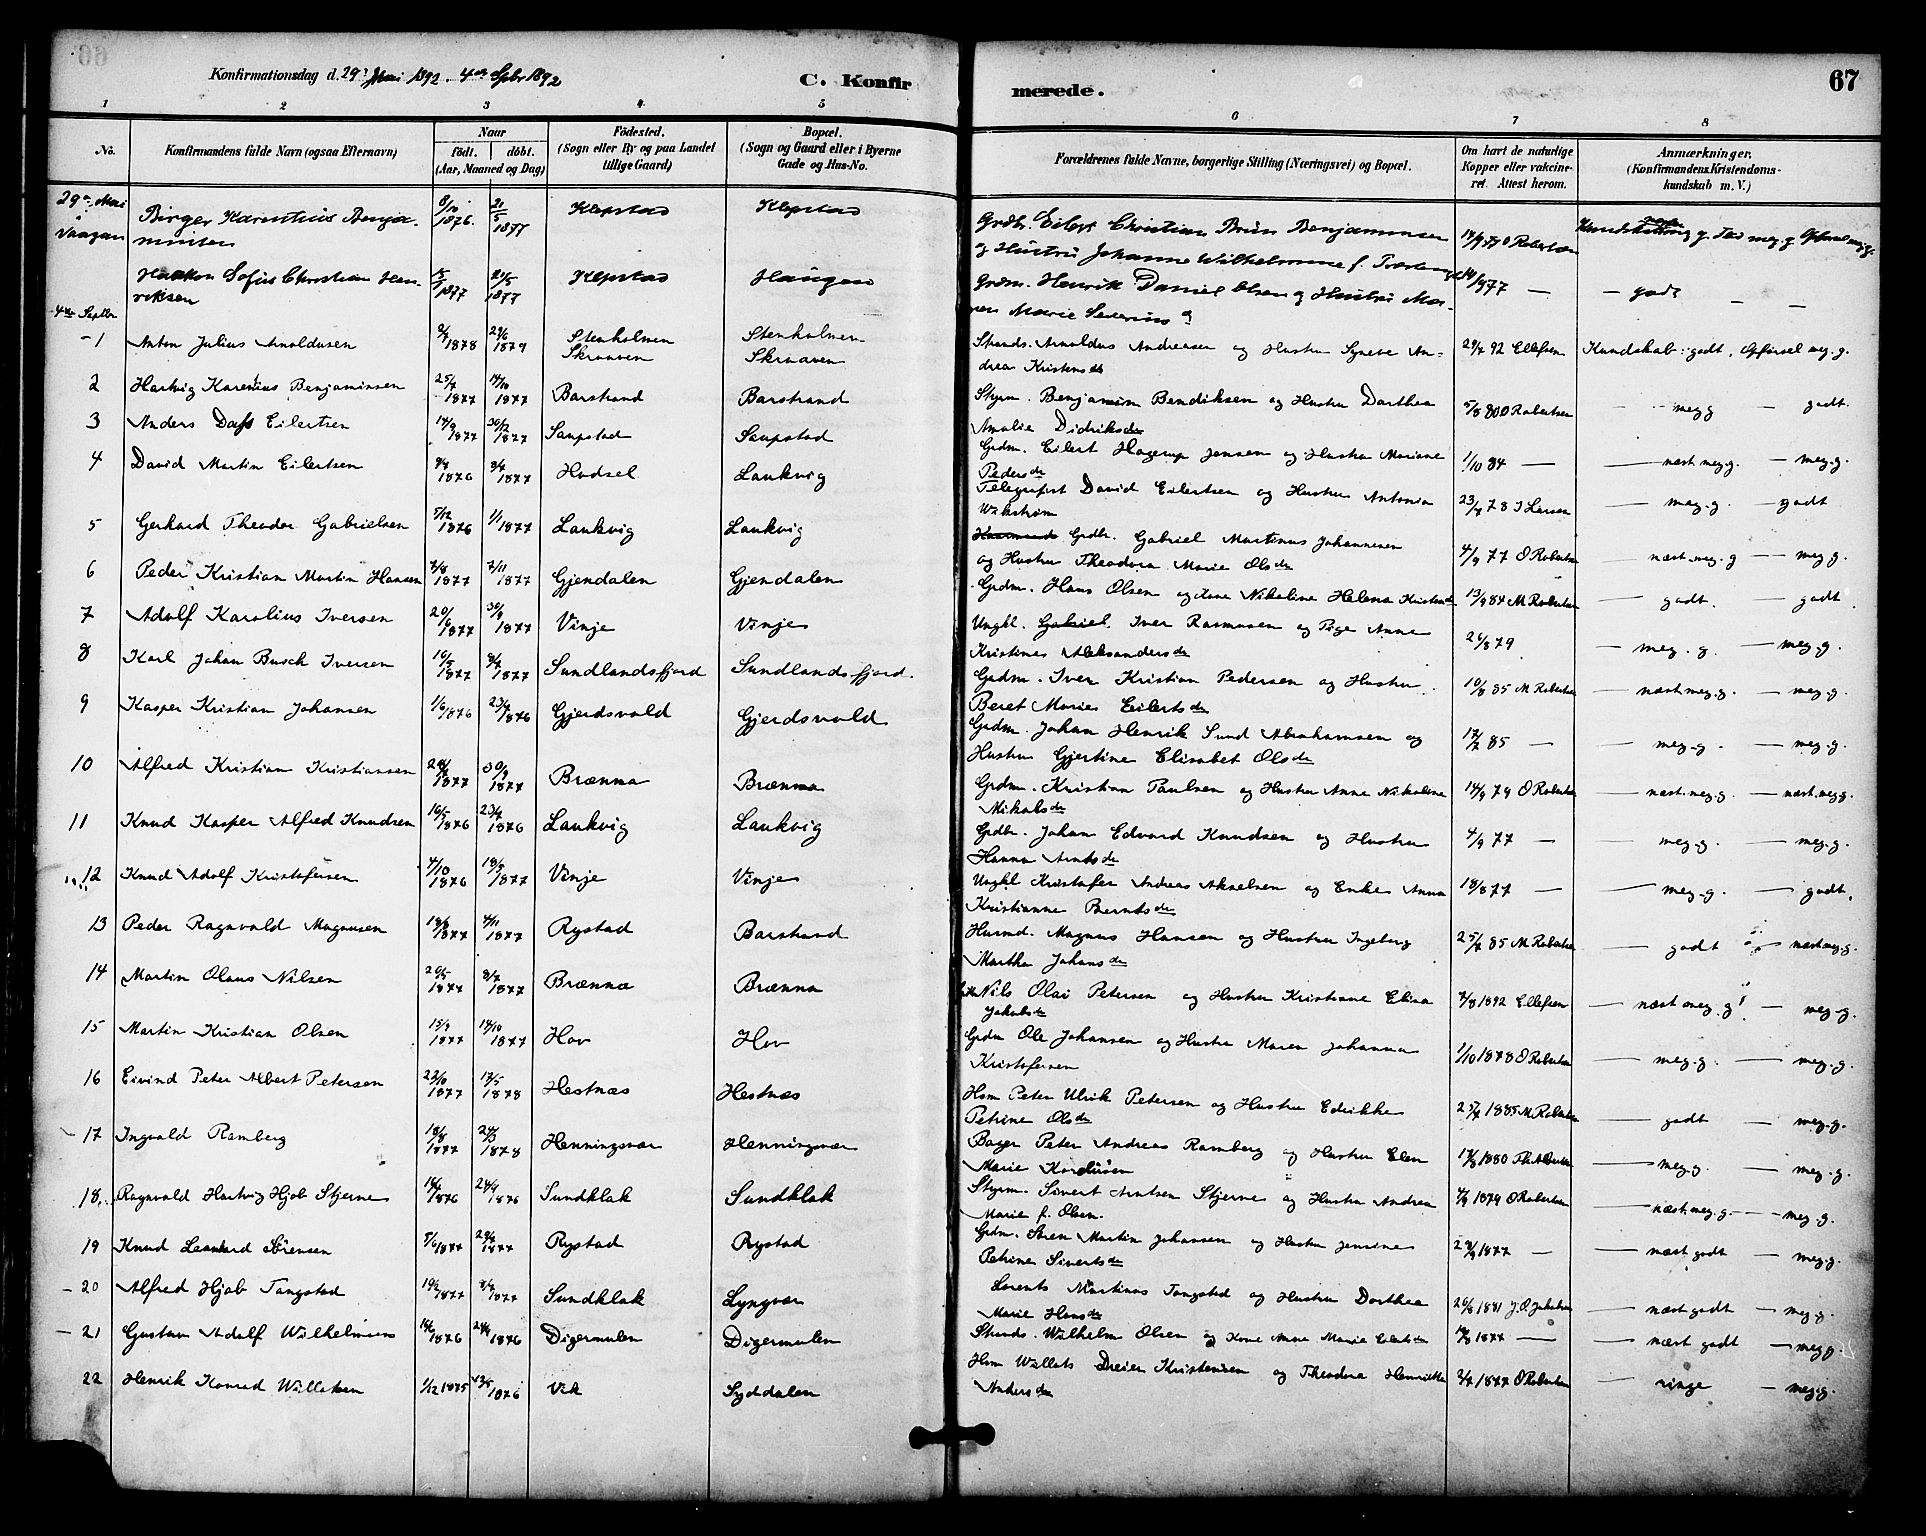 Konfirmationsdag d. 29 Mai 1892. 4 Spbr 1892
C. Konfirmerede.
67
1 2 3 4 5 6 7 8
No.
Konfirmandens fulde Navn (ogsaa Efternavn)
Naar
født. døbt.
(Aar, Maaned og Dag)
Fødested.
(Sogn eller By og paa Landet
tillige Gaard)
Bopæl.
(Sogn og Gaard eller i Byerne
Gade og Hus-No.
Forældrenes fulde Navne, borgerlige Stilling (Næringsvei) og Bopæl.
Om havt de naturlige
Kopper eller vakcine-
ret. Attest herom.
Anmærkninger.
(Konfirmandens Kristendoms-
kundskab m. V.)
29 Mai i Vaagan
Birger Karentius Benja-
minsen 8/10 1876. 21/5 1877 Klepstad Klepstad Grdbr. Eilert Christian Bruun Benjaminsen
og Hustru Johanne Wilhelmine f.
Haakon Sofus Christian Hen-
riksen 1877 21/5 1877 Klepstad Haugen Grdm. Henrik Daniel Olsen og Hustru Ma-
ren Marie 14/9 77 — — godt — —
4de Septbr
1 Anton Julius Arnoldusen 1878 29/6 1879 Stenholmen Skraaven Stenholmen Skraaven Strands. Arnoldus Andreasen og Hustru Synete An-
drea Kristensdr 29/7 92 Ellefsen Kundskab: godt, Opførsel meg. g.
2 Hartvig Karenius Benjaminsen 25/7 1877 14/10 1877 Barstrand Barstrand Styrm. Benjamin Bendiksen og Hustru Dorthea
Amalie Didriksdr 5/8 80 O Robertsen — meg g — godt
3 Anders Dass Eilertsen 14/9 1877 30/12 1877 Saupstad Saupstad Grdm. Eilert Hagerup Jensen og Hustru Mariane
Pedersdr 1/10 84 — — næst meg. g. — meg. g.
4 David Martin Eilertsen 1876 1877 Hadsel Laukvig Telegrafist David Eilertsen og Hustru Antonia
Wikstrøm 23/7 78 J Larsen — meg. g. — godt
5 Gerhard Theodor Gabrielsen 5/12 1876 1/1 1877 Laukvig Laukvig Grdbr. Gabriel Martinus Johannesen
og Hustru Theodora Marie Olsdr 4/9 77 O Robertsen — næst. meg. g — meg. g.
6 Peder Kristian Martin Hansen 2/8 1877 2/11 1877 Gjendalen Gjendalen Grdm. Hans Olsen og Kone Nikoline Helena Kristensdr 13/9 84 M Robertsen — godt. — godt
7 Adolf Karolius Iversen 20/6 1877 30/9 1877 Vinje Vinje Ungkl. Iver Rasmusen og Pige Anne
Kristines Aleksandersdr 26/8 79 — meg. g. — meg. g.
8 Karl Johan Busch Iversen 16/5 1877 8/7 1877 Sundlandsfjord Sundlandsfjord. Grdm. Iver Kristian Pedersen og Hustru
Beret Marie Eilertsdr 10/8 85 M Robertsen — næst. meg. g. — meg. g.
9 Kasper Kristian Johansen 1/6 1876 23/7 1876 Gjerdsvold Gjerdsvold Grdm. Johan Henrik Sund Abrahamsen og
Hustru Gjertine Elisabet Olsdr 12/7 85 — — meg. g. — meg. g.
10 Alfred Kristian Kristiansen 1877 30/9 1877 Brænna Brænna Grdm. Kristian Paulsen og Hustru Anne Nikoline
Nikolsdr 14/9 79 O Robertsen — næst. meg. g. — næst. meg g.
11 Knud Kasper Alfred Knudsen 16/5 1876 23/7 1876 Laukvig Laukvig Grdbr. Johan Edvard Knudsen og Hustru
Hanna Arntsdr 4/9 77 — — meg. g. — meg. g.
12 Knud Adolf Kristofersen 4/10 1876 18/3 1877 Vinje Vinje Ungkl Kristofer Andreas Akselsen og Enke Anna
Kristianne Berntsdr 18/8 77 — — meg. g. — godt.
13 Peder Ragnvald Magnusen 18/8 1877 4/11 1877 Rystad Barstrand Husmd. Magnus Hansen og Hustru Ingeborg
Martha Johansdr 25/7 85 M Robertsen — godt — næst meg. g.
14 Martin Olaus Nilsen 20/5 1877 8/7 1877 Brænna Brænna Nils Olai Petersen og Hustru Kristiane Elisa
Jakobsdr 4/8 1892 Ellefsen — næst meg. g. — meg. g.
15 Martin Kristian Olsen 15/9 1877 14/10 1877 Hov Hov Grdm Ole Johansen og Hustru Maren Johanna
Kristofersen 1/10 1878 O Robertsen — meg. g. — meg. g.
16 Eivind Peter Albert Petersen 23/10 1877 13/5 1878 Hestnæs Hestnæs Hsm Peter Ulrik Petersen og Hustru Edrikke
Petrine Olsdr 25/7 1885 M Robertsen — godt — meg. g.
17 Ingvald Ramberg 18/8 1877 24/3 1878 Henningsvær Henningsvær Bager Peter Andreas Ramberg og Hustru Elen
Marie 1880 — meg. g. — meg. g.
18. Ragnvald Hartvig Hjob Stjerne 1876 24/9 1876 Sundklak Sundklak Styrm. Sivert Arntsen Stjerne og Hustru Andrea
Marie f. Olsen. 4/9 1879 O Robertsen — næst. meg. g. — meg. g.
19 Knud Leonhard Sørensen 5/6 1877 29/7 1877 Rystad Rystad Grdm. Søren Martin Johansen og Hustru Jensine
Petrine Sivertsdr 1877 — — næst godt — meg. g.
20 Alfred Hjob Tangstad 1877 1877 Sundklak Lyngvær Lorents Martinus Tangstad og Hustru Dorthea
Marie Hansdr 26/8 1881 — næst godt — meg. g.
21 Gustav Adolf Wilhelmsen 1876 1876 Digermulen Digermulen Strands. Wilhelm Olsen og Kone Anne Marie 1877 — — næst godt — meg g.
22 Henrik Konrad Willatsen 1/12 1875 1876 Vik Syddalen Hsm Willats Dreier Kristensen og Theodora Henriette
Andersdr 2/7 1877 O Robertsen — ringe — meg. g.